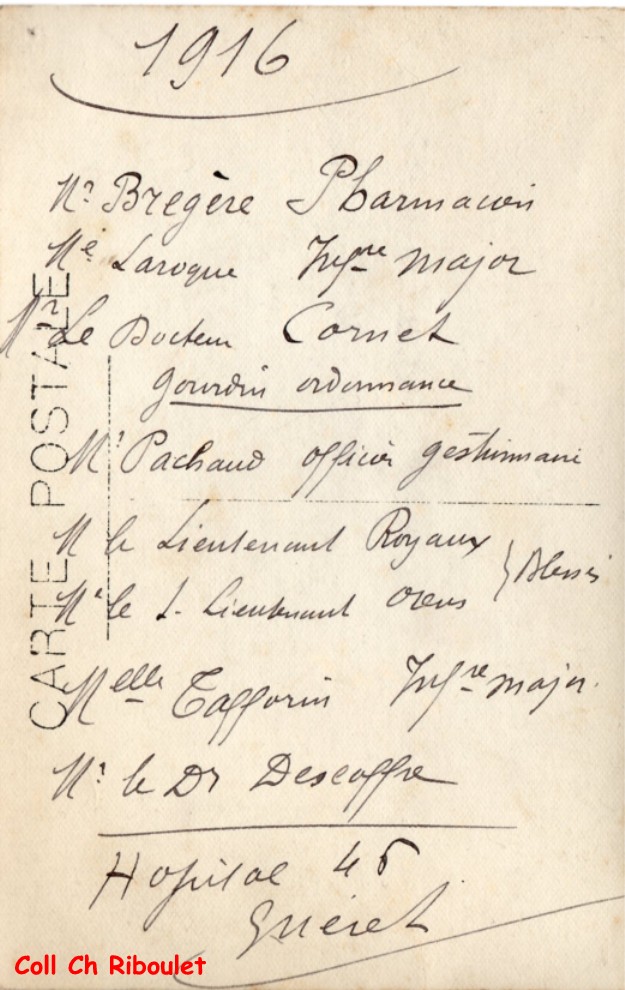 1916
Mr Bregère Pharmacien
Me Laroque Infre major
Mr Le Docteur Cornet
Gourdin ordonnance
Mr Pachaud officier gestionnaire
M le Lieutenant Royaux
Mr le s. Lieutenant Orens } Blessés
Melle Tafforin Infre major.
Mr le Dr Descoffre
Hopital 46
Guéret
CARTE POSTALE
Coll Ch Riboulet